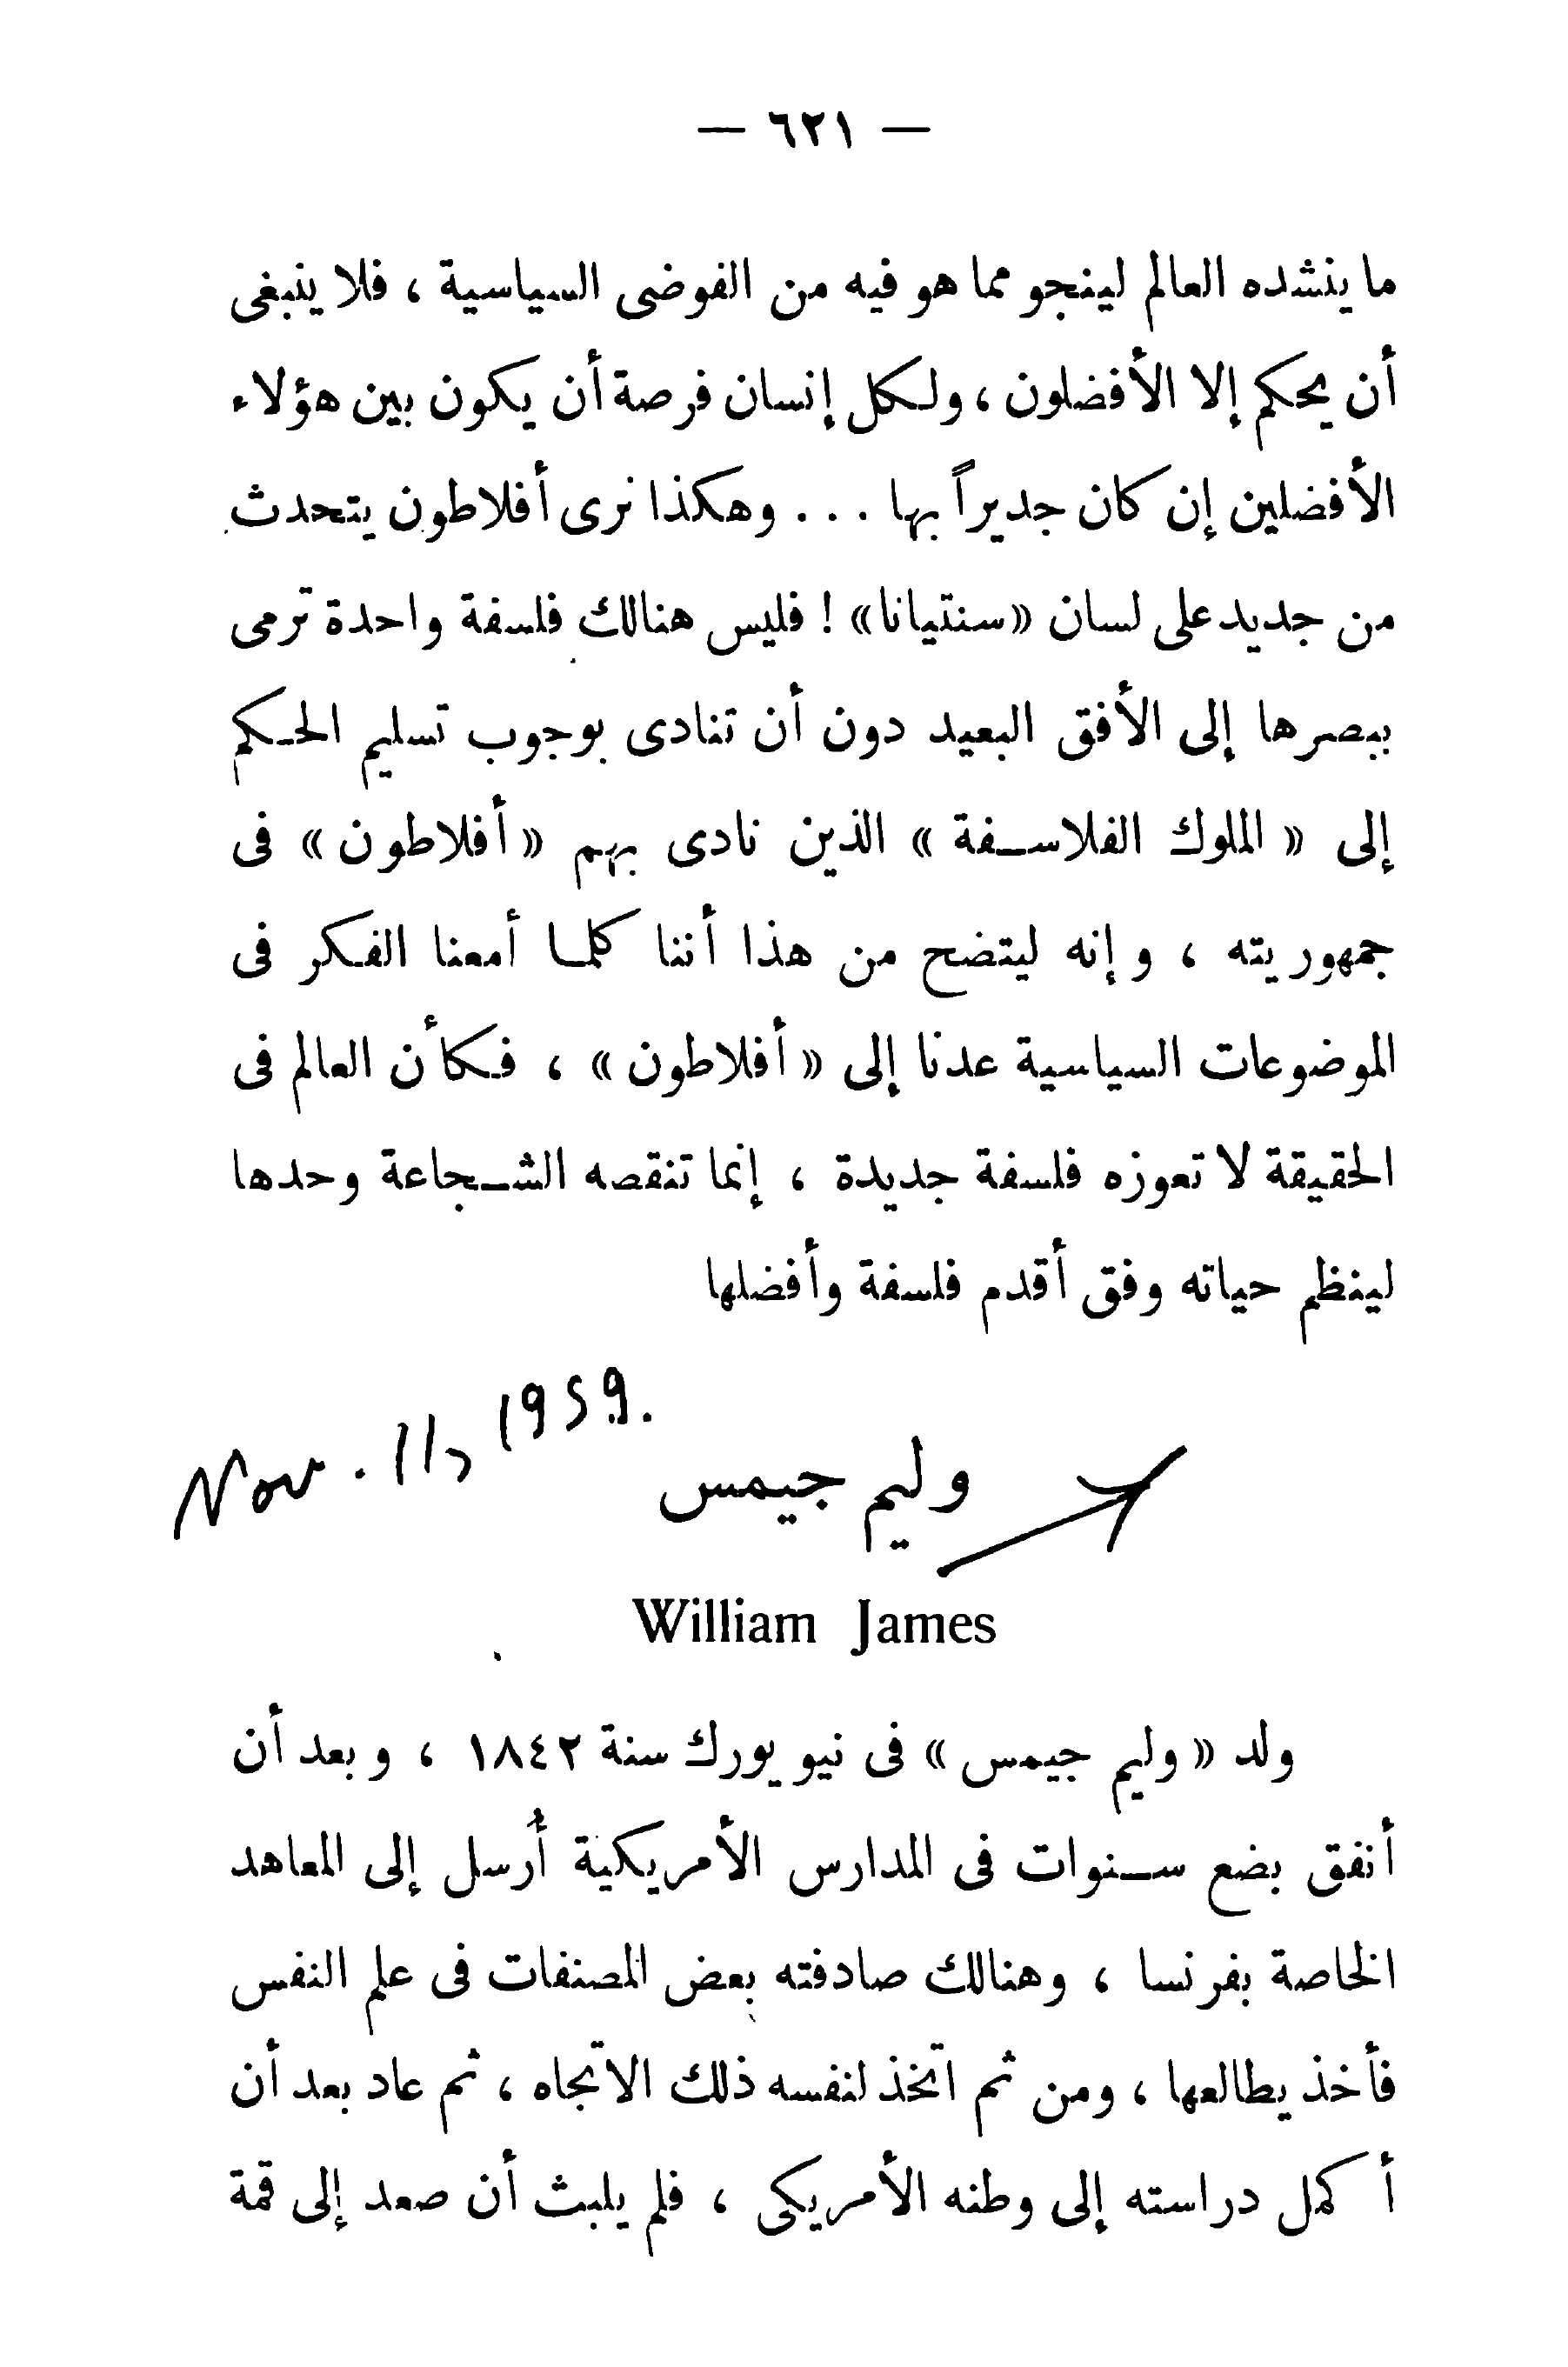 — ٦٢١ —
ما ينشده العالم لينجو مما هو فيه من الفوضى السياسية ، فلا ينبغى
أن يحكم إلا الأفضلون ، ولكل إنسان فرصة أن يكون بين هؤلاء
الأفضلين إن كان جديراً بها . . . وهكذا نرى أفلاطون يتحدث
من جديد على لسان «سنتيانا» ! فليس هنالك فلسفة واحدة ترمى
ببصرها إلى الأفق البعيد دون أن تنادى بوجوب تسليم الحكم
إلى « الملوك الفلاسفة » الذين نادى بهم « أفلاطون » فى
جمهوريته ، وإنه ليتضح من هذا أننا كلما أمعنا الفكر فى
الموضوعات السياسية عدنا إلى « أفلاطون » ، فكأن العالم فى
الحقيقة لا تعوزه فلسفة جديدة ، إنما تنقصه الشجاعة وحدها
لينظم حياته وفق أقدم فلسفة وأفضلها
Nov. 11, 1959.
وليم جيمس
William James
ولد « وليم جيمس » فى نيو يورك سنة ١٨٤٢ ، وبعد أن
أنفق بضع سنوات فى المدارس الأمريكية أُرسل إلى المعاهد
الخاصة بفرنسا ، وهنالك صادفته بعض المصنفات فى علم النفس
فأخذ يطالعها ، ومن ثم اتخذ لنفسه ذلك الاتجاه ، ثم عاد بعد أن
أكمل دراسته إلى وطنه الأمريكى ، فلم يلبث أن صعد إلى قمة